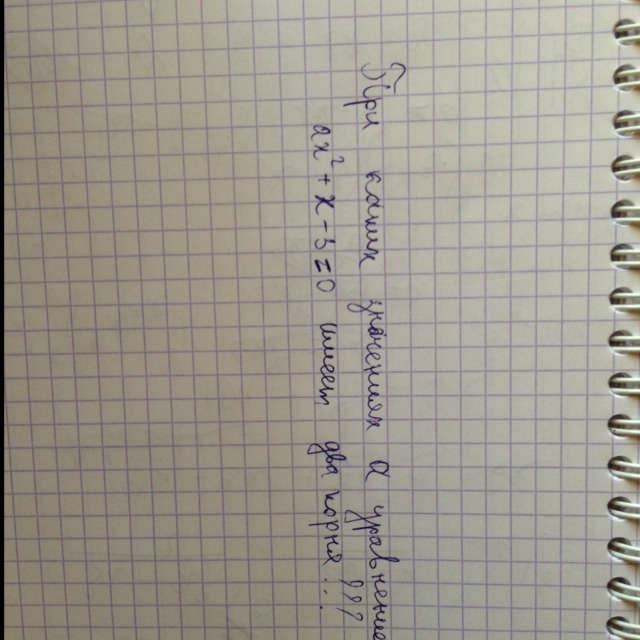 При каких значениях а уравнение
ax² + x - 3 = 0 имеет два корня...???